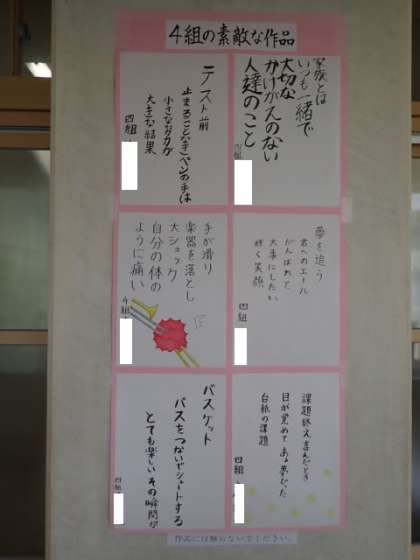 4組の素敵な作品
家族とは
いつも一緒で
大切な
かけがえのない
人達のこと
四組
テスト前
止まることなきペンの手は
小さな努力が
大きな結果
四組
夢を追う
君へのエール
がんばれて
大事にしたい
輝く笑顔
四組
手が滑り
楽器を落とし
大ショック
自分の体の
ように痛い
4組
課題終え喜んだとき
目が覚めてある夢だった
白紙の課題
四組
バスケット
パスをつないでシュートする
とても楽しいその瞬間が
四組
作品には触らないでください。